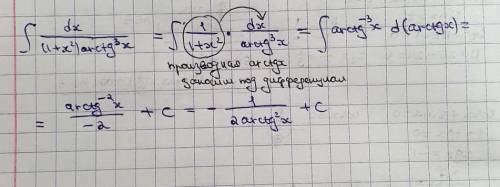 ∫ dx / ((1+x²)arctg³x) = ∫ 1/(1+x²) · dx/(arctg³x) = ∫ arctg⁻³x d(arctgx) =
производная arctgx
заносим под дифференциал
= arctg⁻²x / -2 + C = - 1/(2arctg²x) + C